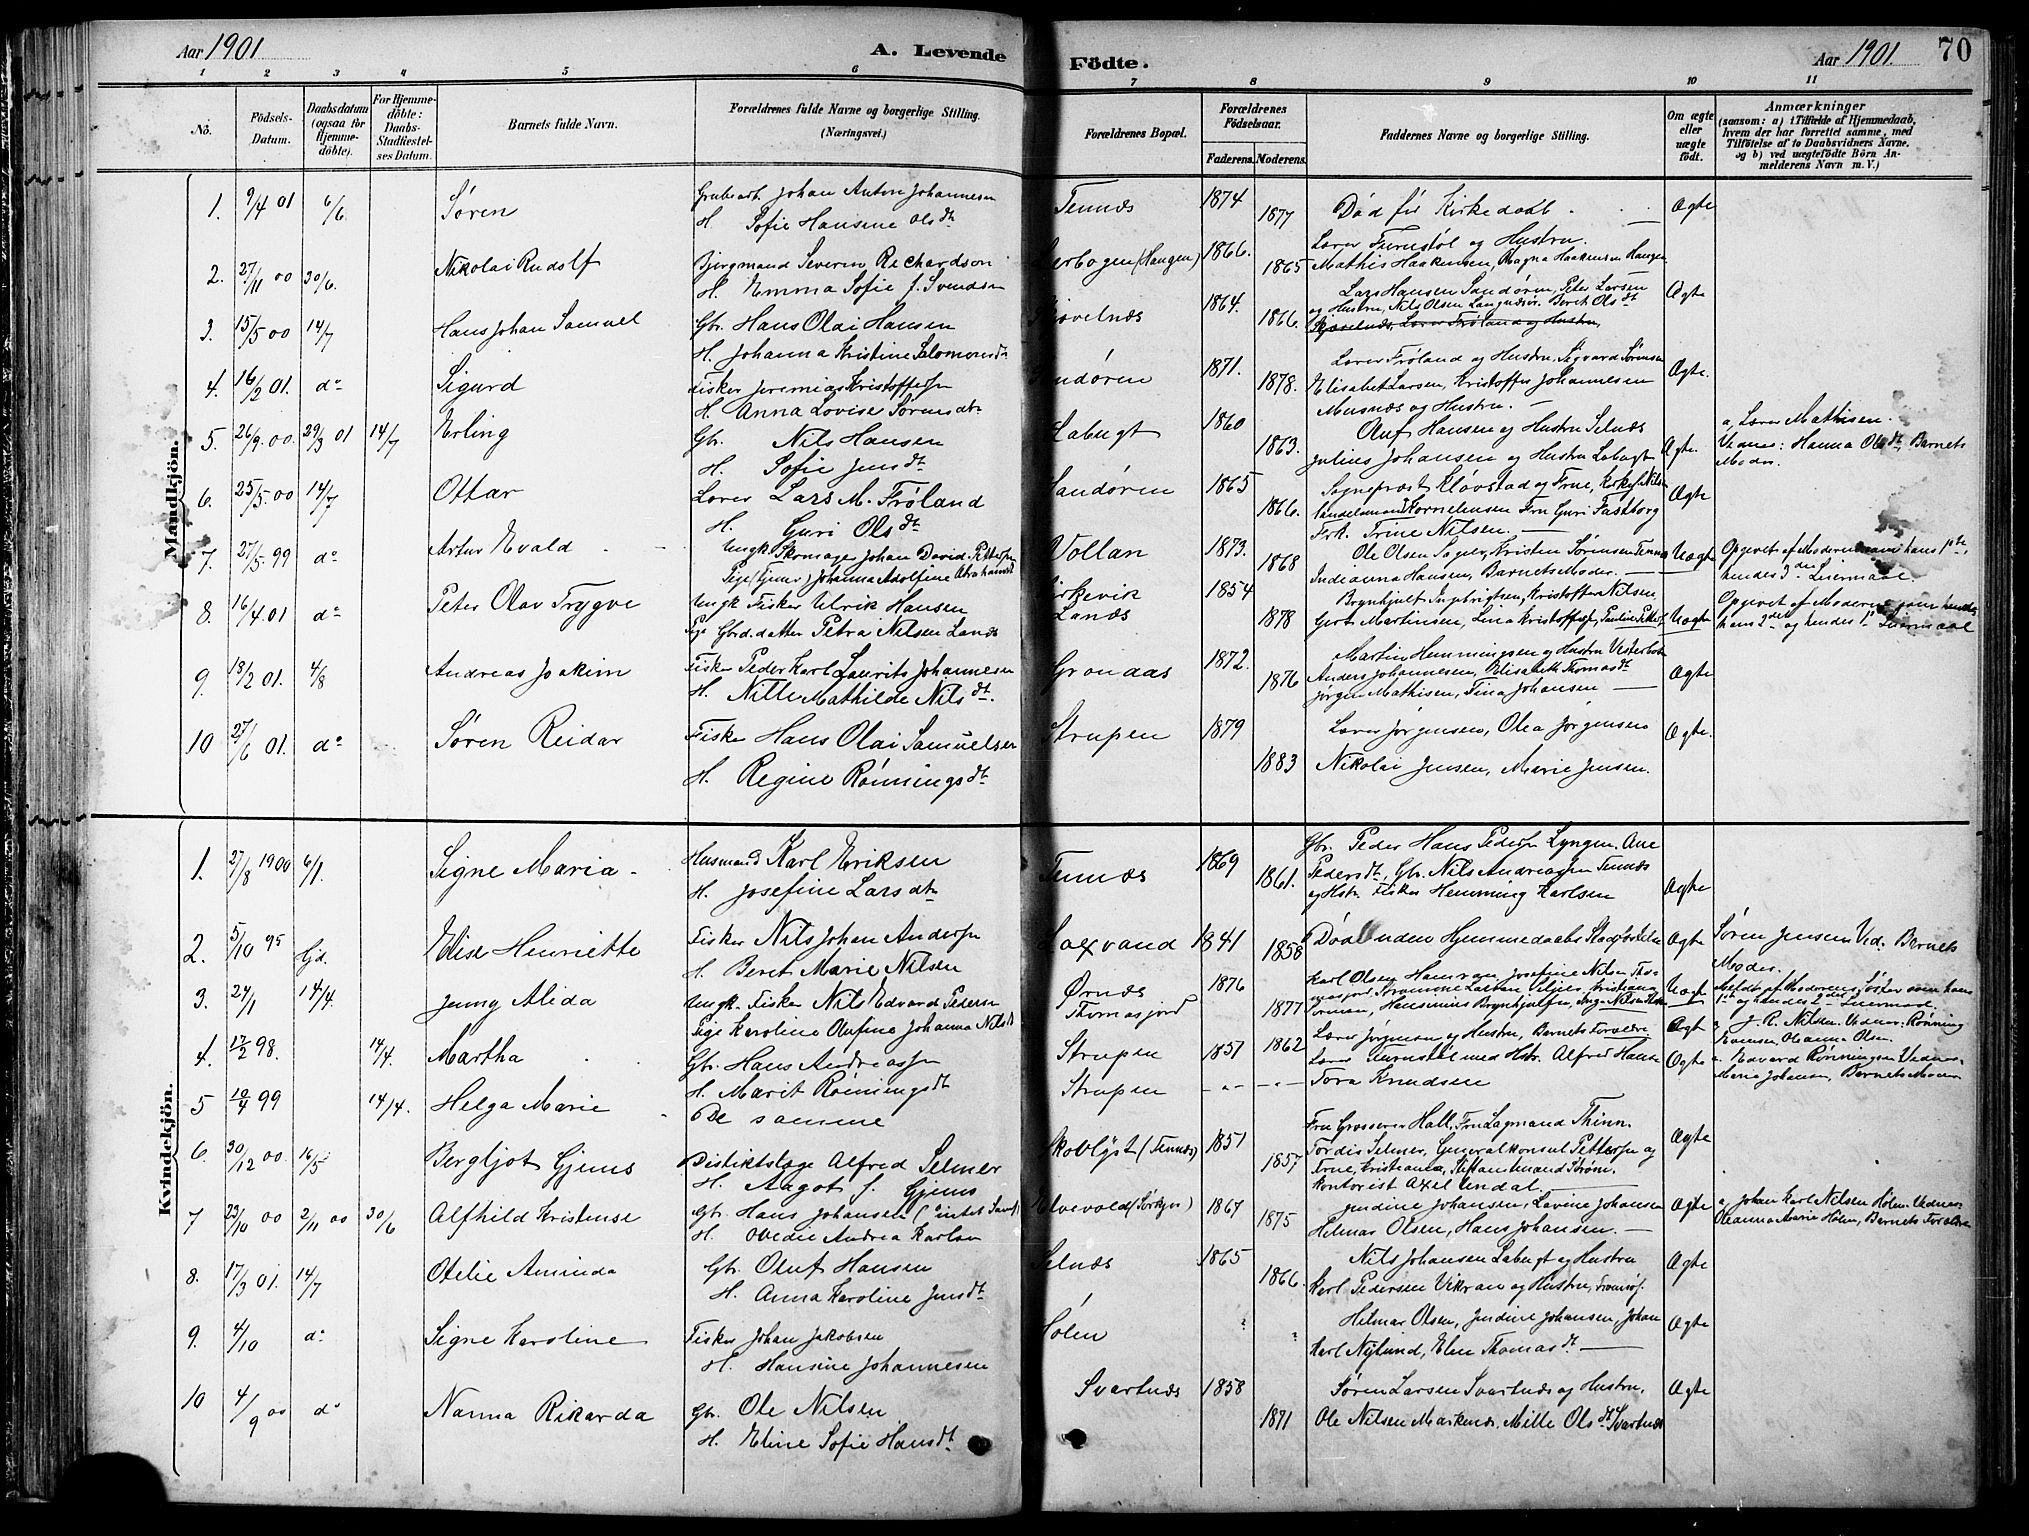 Aar 1901. A. Levende Födte. Aar 1901. 70
1 2 3 4 5 6 7 8 9 10 11
No. Födsels-Datum. Daabsdatum (ogsaa for Hjemmedöbte). For Hjemmedöbte: Daabs-Stadfæstelses Datum. Barnets fulde Navn. Forældrenes fulde Navne og borgerlige Stilling. (Næringsvei.) Forældrenes Bopæl. Forældrenes Födselsaar. Faderens. Moderens. Faddernes Navne og borgerlige Stilling. Om ægte eller uægte födt. Anmærkninger (saasom: a) i Tilfælde af Hjemmedaab, hvem der har forrettet samme, med Tilföielse af to Daabsvidners Navne, og b) ved uægtefödte Börn Anmelderens Navn m. V.)
Mandkjön.
1. 9/4 01 6/6. Søren Grubearb. Johan Anton Johannesen Tennæs 1874 Død før Kirkedaab. Ægte
H. Sofie Hansine Olsdt 1877
2. 27/11 00 30/6. Nikolai Rudolf Severin Richardson (Haugen) 1866. Lærer Furnstøl og Hustru.
H. Emma Sofie J. Svendsen 1865 Mathis Haakensen, Magna Haakensen Haugen
3. 15/5 00 14/7 Hans Johan Samuel Gbr. Hans Olai Hansen 1864. Lars Hansen Sandøren, Peder Larsen Ægte
H. Johanna Kristine Salomonsdt 1866. og Hustru, Nils Olsen Beret Olsdt
Lærer Frøland og Hustru,
4. 16/2 01. do Sigurd Fisker Jeremias Kristoffersen 1871. Lærer Frøland og Hustru, Sigvard Sørensen Ægte.
H. Anna Lovise Sørensdtr 1878. Elisabet Larsen, Kristoffer Johannesen
og Hustru.
5. 26/9. 00. 29/3 01 14/7 Erling Gbr. Nils Hansen Labugt 1860 Oluf Hansen og Hustru Selnæs Ægte. a, Lærer Mathisen.
H. Sofie Jensdt 1863. Julius Johansen og Hustru Labugt Vidner: Hanna Olsdt, Barnets Moder.
6. 25/5. 00 14/7 Ottar Lærer Lars M. Frøland Sandøren 1865 Sogneprest Kløvstad og Frue, Kirkes. Nilsen Ægte
H. Guri Olsdt 1866. Handelsmand Kornelinsen Fru Guri Fastborg
Frk. Trine Nilsen.
7. 27/5. 99 do Artur Evald Ungk. Skomager Johan David Pettersen Vollan 1873. Ole Olsen Kristen Sørensen Uægte Opgivet af Moderen som hans 1ste,
Pige (Tjener) Johanna Adolfine Abrahamsdt 1868 Indianna Hansen, Barnets Moder. hendes 3die Leiermaal.
8. 16/4. 01 do Peter Olav Trygve Ungk Fisker Ulrik Hansen 1854 Brynhjulf Ingebrigtsen, Kristoffer Nilsen, Opgivet af Moderen som
Pige Gbrd. datter Petra Nilsen Lanæs Lanæs 1878 Gert Martinsen, Lina Kristoffersen, Uægte hans 3die og hendes 1ste Leiermaal
9. 18/2 01. 4/8 Andreas Joakim Fisker Peder Karl Laurits Johannesen Grønaas 1872. Martin Hemmingsen og Hustru Vesterbotn
H. Nille Mathilde Nilsdt. 1876 Anders Johannesen, Elisabeth Thomasdt Ægte
Jørgen Mathisen, Tina Johansen
10 27/6 01. do Søren Reidar Fisker Hans Olai Samuelsen Strupen 1879 Lærer Jørgensen, Olea Jørgensen Ægte.
H. Regine Rønningsdt 1883 Nikolai Jensen, Marie Jensen.
Kvindekjön.
1. 27/8 1900 6/1. Signe Maria Husmand Karl Eriksen Tennæs 1869 Gbr. Peder Hans Pedersen Lyngen. Ane
H. Josefine Larsdtr 1861. Pedersdt, Gbr. Nils Andreassen Tennæs Ægte
og Hstr. Fisker Hemming Karlsen
2. 5/10 95 hjd. Elise Henriette Fisker Nils Johan Andersen Laxvand 1841 Død uden Hjemmedaabs Ægte Søren Jensen Vid. Barnets Moder.
H. Beret Marie Nilsen 1858
3. 24/1 14/4. Jenny Alida Ungk. Fisker Nils Edvard Pedersen Ørnæs 1876 Karl Olsen Josefine Nilsen Uægt Meldt af Moderens Søster som hans
Pige Karoline Olufine Johanna Nilsdt Thomasjord 1877 Hansinius Brynhjulfsen, 1ste og hendes 2det Leiermaal.
4. 17/2 98. 14/4. Martha Gbr. Hans Andreassen Strupen 1851 1862 Lærer Jørgensen og Hustru, Barnets Forældre Ægt J. R. Nilsen. Vidner: Rønning
H. Marit Rønningsdt Lærer Furnstøl med Hstr. Alfred Hansen Ægte Oleanna Olsen.
5 10/4 99 14/4. Helga Marie De samme Strupen Tora Knudsen a. Edvard Rønningsen Vidner
Marie Johansen, Barnets Moder
6. 30/12 00. 16/5 Bergljot Gjems Distriktslæge Alfred Selmer Skovlyst (Tennæs) 1851 Fru Grosserer Hall, Fru Lagmand Thinn. Ægte
H. Aagot f. Gjems 1857 Tordis Selmer, Generalkonsul Pettersen og
Frue, Kristiania, Stiftamtmand Strøm.
Kontorist Axel Uendal.
7 23/10 00 2/11 00 30/6 Alfhild Kristense Gbr. Hans Johansen 1867 Jendine Johansen, Lavine Johansen Ægte a, Johan Karl Nilsen Hølen. Vidner
H. Ovedie Andrea Karlsen 1875 Helmar Olsen, Hans Johansen. Oleanna Marie Hølen, Barnets Forældre
8. 17/3 01. 14/7 Otelie Aminda Gbr. Oluf Hansen Selnæs 1865 Nils Johansen Labugt og Hustru Ægte
H. Anna Karoline Jensdt 1866. Karl Pedersen Vikran og Hustru, Tromsø.
9. 4/10 do Signe Karoline Fisker Johan Jakobsen Hølen Hilmar Olsen, Jendine Johansen, Johan Ægte
H. Hansine Johannesen Karl Nylund, Elen Thomasdt
10 4/9 00 do Nanna Rikarda Gbr. Ole Nilsen Svartnæs 1858 Søren Larsen Svartnæs og Hustru, Ægte
H. Eline Sofie Hansdt 1871 Ole Nilsen Markenæs, Mille Olsdt Svartnæs